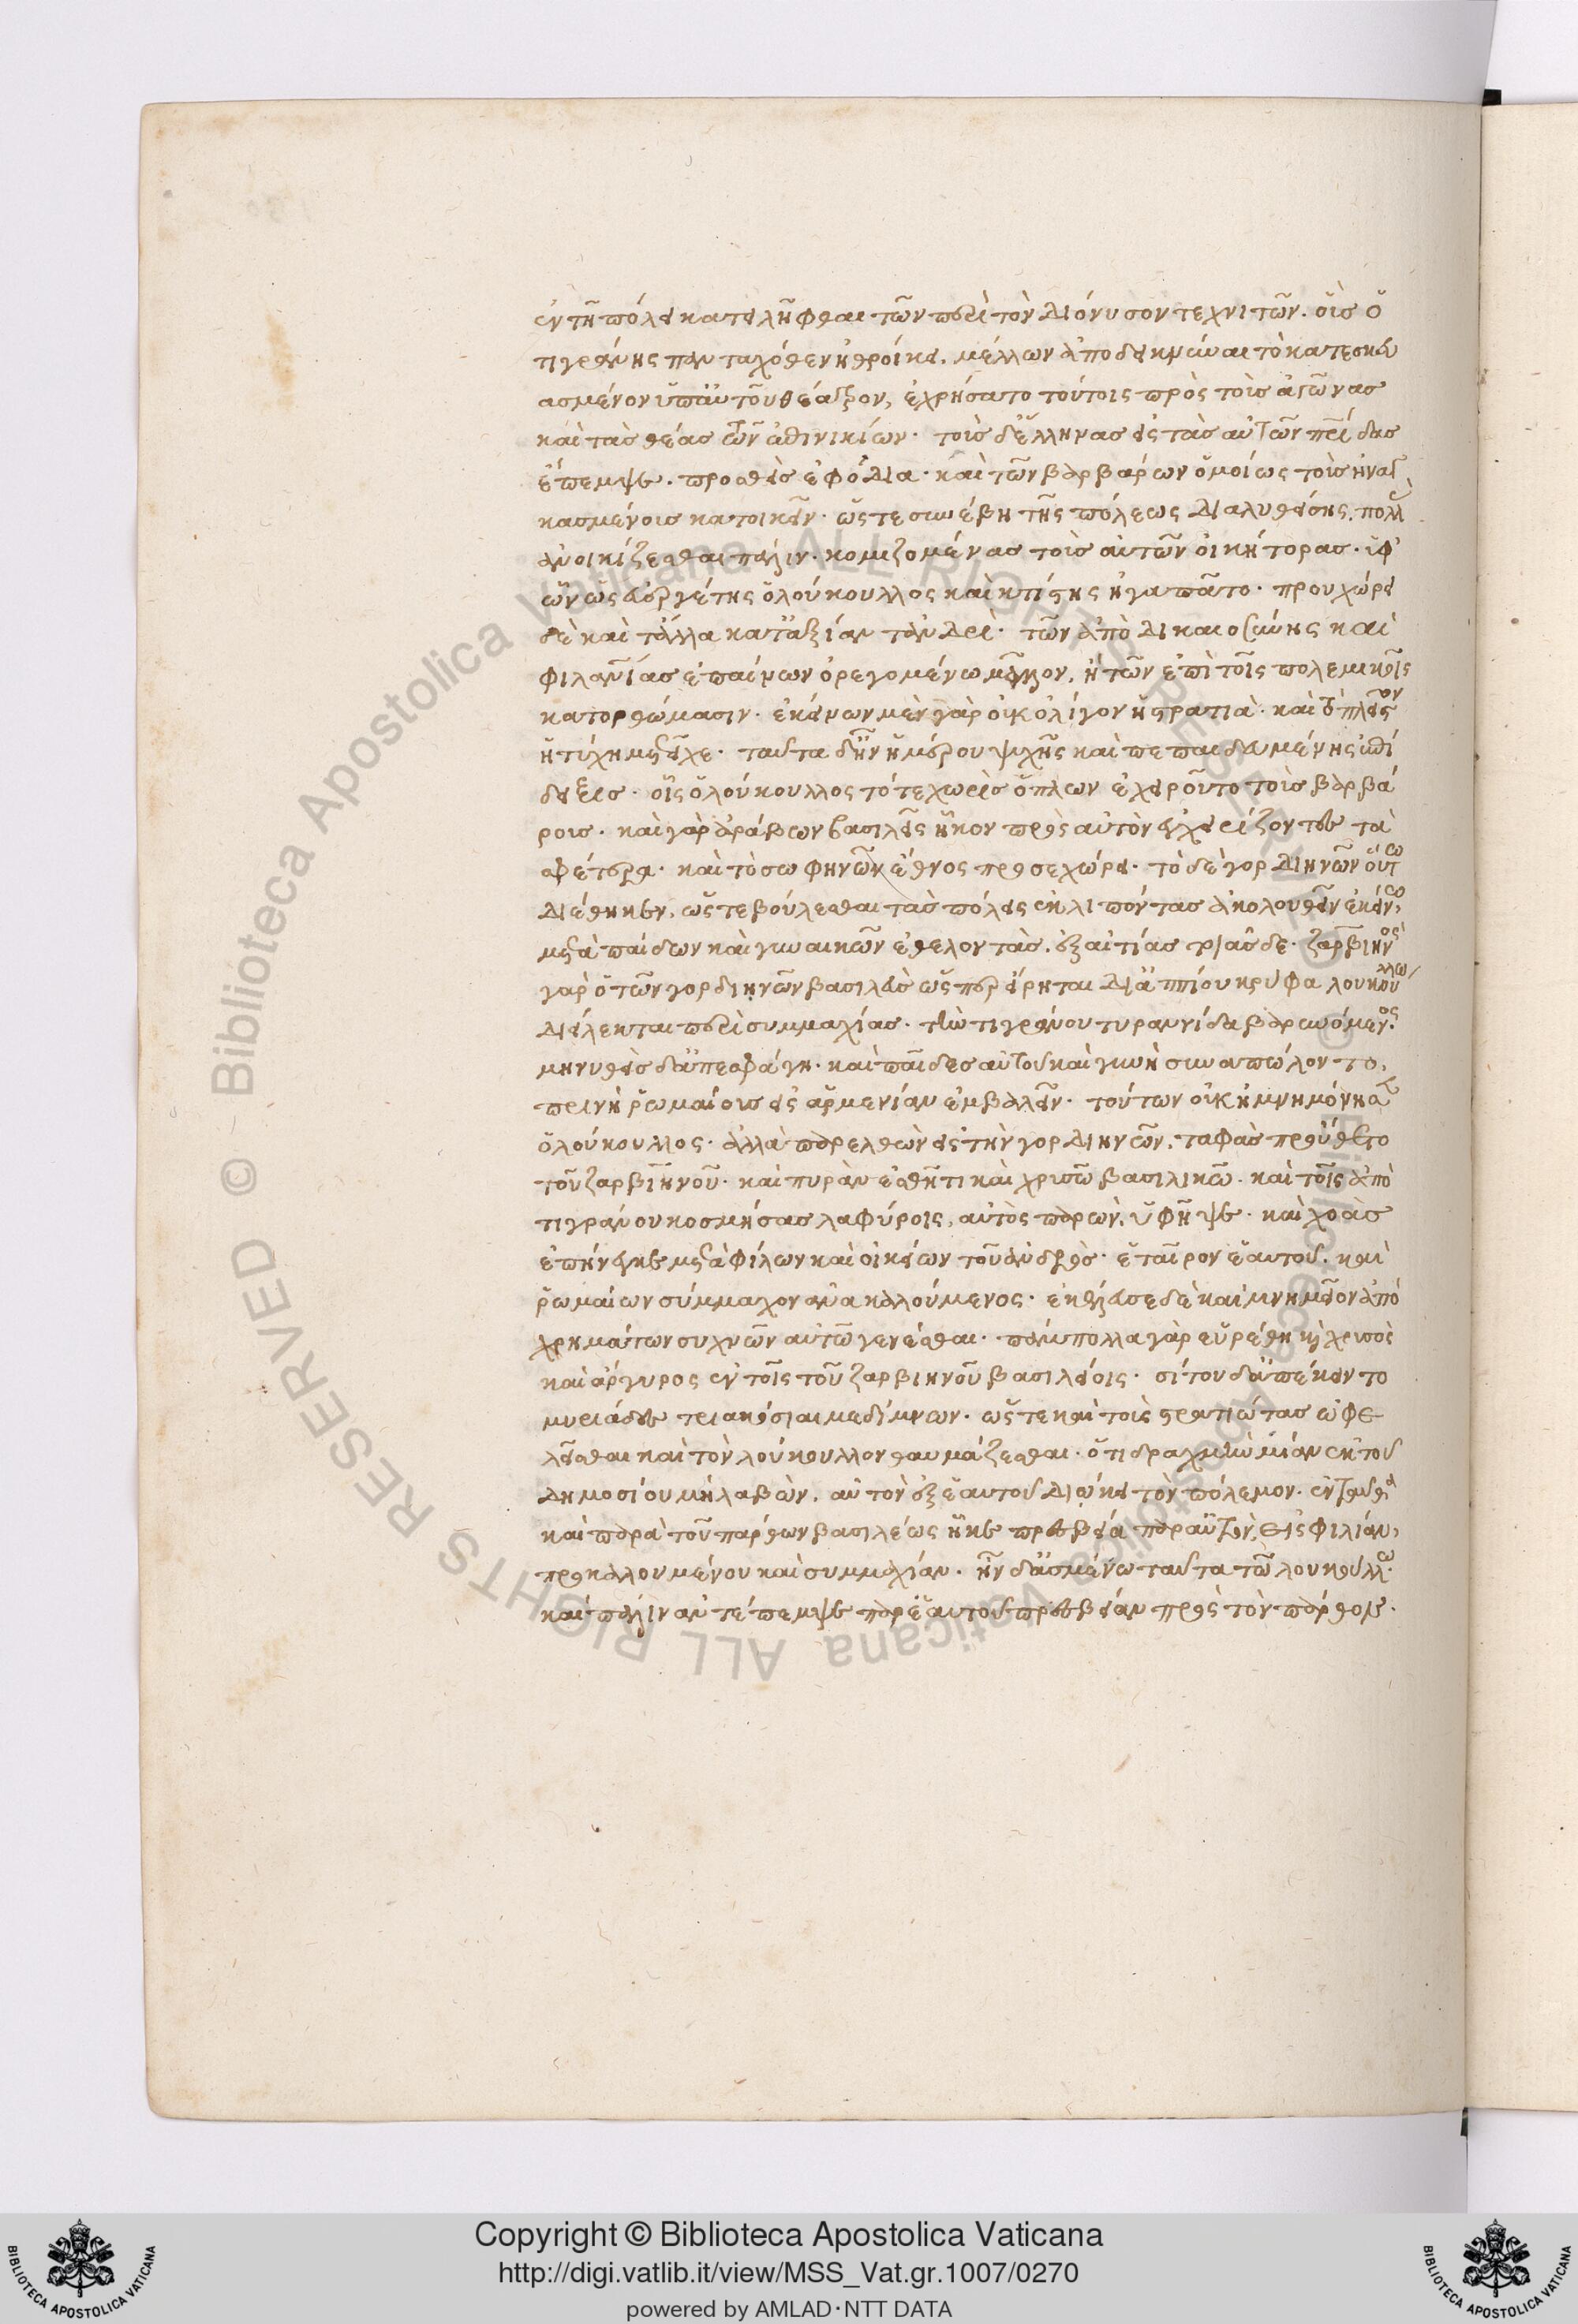 ἐν τῆ πόλει κατειλῆφθαι τῶν περὶ τὸν Διόνυσον τεχνιτῶν. οὓς ὁ
τιγράνης πανταχόθεν ἠθροίκει. μέλλων ἀποδεικνύναι τὸ κατεσκευ
ασμένον ὑπ' αὐτοῦ θέατρον, ἐχρήσατο τούτοις πρὸς τοὺς ἀγῶνας
καὶ τὰς θέας τῶν ἐπινικίων. τοὺς δ' ἕλληνας εἰς τὰς αὐτῶν πρίδας
ἔπεμψε. προσθεὶς ἐφόδια. καὶ τῶν βαρβάρων ὁμοίως τοὺς ἠναγ
κασμένους κατοικεῖν. ὥστε συνέβη τῆς πόλεως διαλυθείσης, πολλὰς
ἀνοικίζεσθαι πάλιν. κομιζομένας τοὺς αὑτῶν οἰκήτορας. ὑφ'
ὧν ὡς εὐεργέτης ὁ λούκουλλος καὶ κτίστης ἠγαπᾶτο. προυχώρει
δὲ καὶ τἄλλα κατ' ἀξίαν τἀνδρὶ. τῶν ἀπὸ δικαιοσύνης καὶ
φιλανίας ἐπαίνων ὀρεγομένω μᾶλλον, ἢ τῶν ἐπὶ τοῖς πολεμικοῖς
κατορθώμασιν. ἐκείνων μὲν γὰρ οὐκ ὀλίγον ἡ στρατιὰ. καὶ τὸ πλεῖστον
ἡ τύχη μετεῖχε. ταῦτα δ' ἦν ἡμέρου ψυχῆς καὶ πεπαιδευμένης ἐπί
δειξις. οἷς ὁ λούκουλλος τότε χωρὶς ὅπλων ἐχειροῦτο τοὺς βαρβά
ρους. καὶ γὰρ ἀράβων βασιλεῖς ἧκον πρὸς αὐτὸν ἐγχειρίζοντες τὰ
σφέτερα. καὶ τὸ σωφηνῶν ἔθνος προσεχώρει. τὸ δὲ γορδιηνῶν οὕτω
διέθηκεν, ὥστε βούλεσθαι τὰς πόλεις ἐκλιπόντας ἀκολουθεῖν ἐκείνω,
μετὰ παίδων καὶ γυναικῶν ἐθελοντὰς. ἐξ αἰτίας τοιᾶσδε. ζαρβιηνὸς
γὰρ ὁ τῶν γορδιηνῶν βασιλεὺς ὥσπερ εἴρηται δι' ἀππίου κρύφα λουκούλλω
διείλεκται περὶ συμμαχίας. τὴν τιγράνου τυραννίδα βαρυνόμενος.
μηνυθεὶς δ' ἀπεσφάγη. καὶ παῖδες αὐτοῦ καὶ γυνὴ συναπώλοντο,
πρινὴ ῥωμαίους εἰς ἀρμενίαν ἐμβαλεῖν. τούτων οὐκ ἠμνημόνησεν
ὁ λούκουλλος. ἀλλὰ παρελθὼν εἰς τὴν γορδιηνῶν, ταφὰς προὔθετο
τοῦ ζαρβιηνοῦ. καὶ πυρὰν ἐσθῆτι καὶ χρυσῶ βασιλικῶ. καὶ τοῖς ἀπὸ
τιγράνου κοσμήσας λαφύροις, αὐτὸς παρὼν, ὑφῆψε. καὶ χοὰς
ἐπήνεγκε μετὰ φίλων καὶ οἰκείων τοῦ ἀνδρὸς. ἑταῖρον ἑαυτοῦ, καὶ
ῥωμαίων σύμμαχον ἀνακαλούμενος. ἐκέλευσε δὲ καὶ μνημεῖον ἀπὸ
χρημάτων συχνῶν αὐτῶ γενέσθαι. πάμπολλα γὰρ εὑρέθη καὶ χρυσὸς
καὶ ἄργυρος ἐν τοῖς τοῦ ζαρβιηνοῦ βασιλείοις. σίτου δ' ἀπέκειντο
μυριάδες τριακόσιαι μεδίμνων. ὥστε καὶ τοὺς στρατιώτας ὠφε
λεῖσθαι καὶ τὸν λούκουλλον θαυμάζεσθαι. ὅτι δραχμὴν μίαν ἐκ τοῦ
δημοσίου μὴ λαβὼν, αὐτὸν ἐξ ἑαυτοῦ διώκει τὸν πόλεμον. ἐνταῦθα
καὶ παρὰ τοῦ πάρθων βασιλέως ἧκε πρεσβεία παρ' αὐτὸν, εἰς φιλίαν,
προκαλουμένου καὶ συμμαχίαν. ἦν δ' ἀσμένω ταῦτα τῶ λουκούλλω.
καὶ πάλιν αὐτ' ἔπεμψε παρ' ἑαυτοῦ πρεσβείαν πρὸς τὸν πάρθον.
Copyright © Biblioteca Apostolica Vaticana
http://digi.vatlib.it/view/MSS_Vat.gr.1007/0270
powered by AMLAD·NTT DATA
© Biblioteca Apostolica Vaticana ALL RIGHTS RESERVED
© Biblioteca Apostolica Vaticana ALL RIGHTS RESERVED
BIBLIOTECA APOSTOLICA VATICANA
BIBLIOTECA APOSTOLICA VATICANA